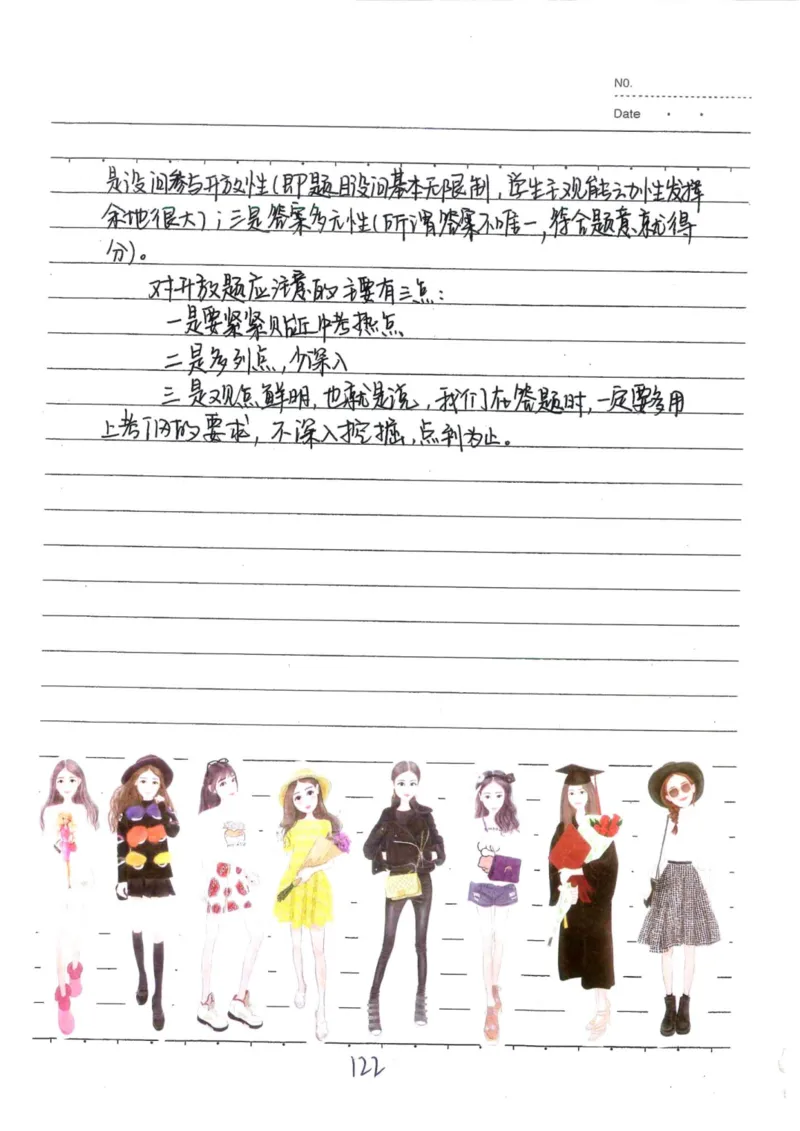 NO.
Date
是设问参与开放性(即题目设问基本无限制,学生主观能动性发挥
余地很大);三是答案多元性(所谓答案不唯一,符合题意就得
分)。
对开放题应注意的主要有三点:
一是要紧紧贴近中考热点
二是多列点,少深入
三是观点鲜明,也就是说,我们在答题时,一定要多用
上考门内的要求,不深入挖掘,点到为止。
122